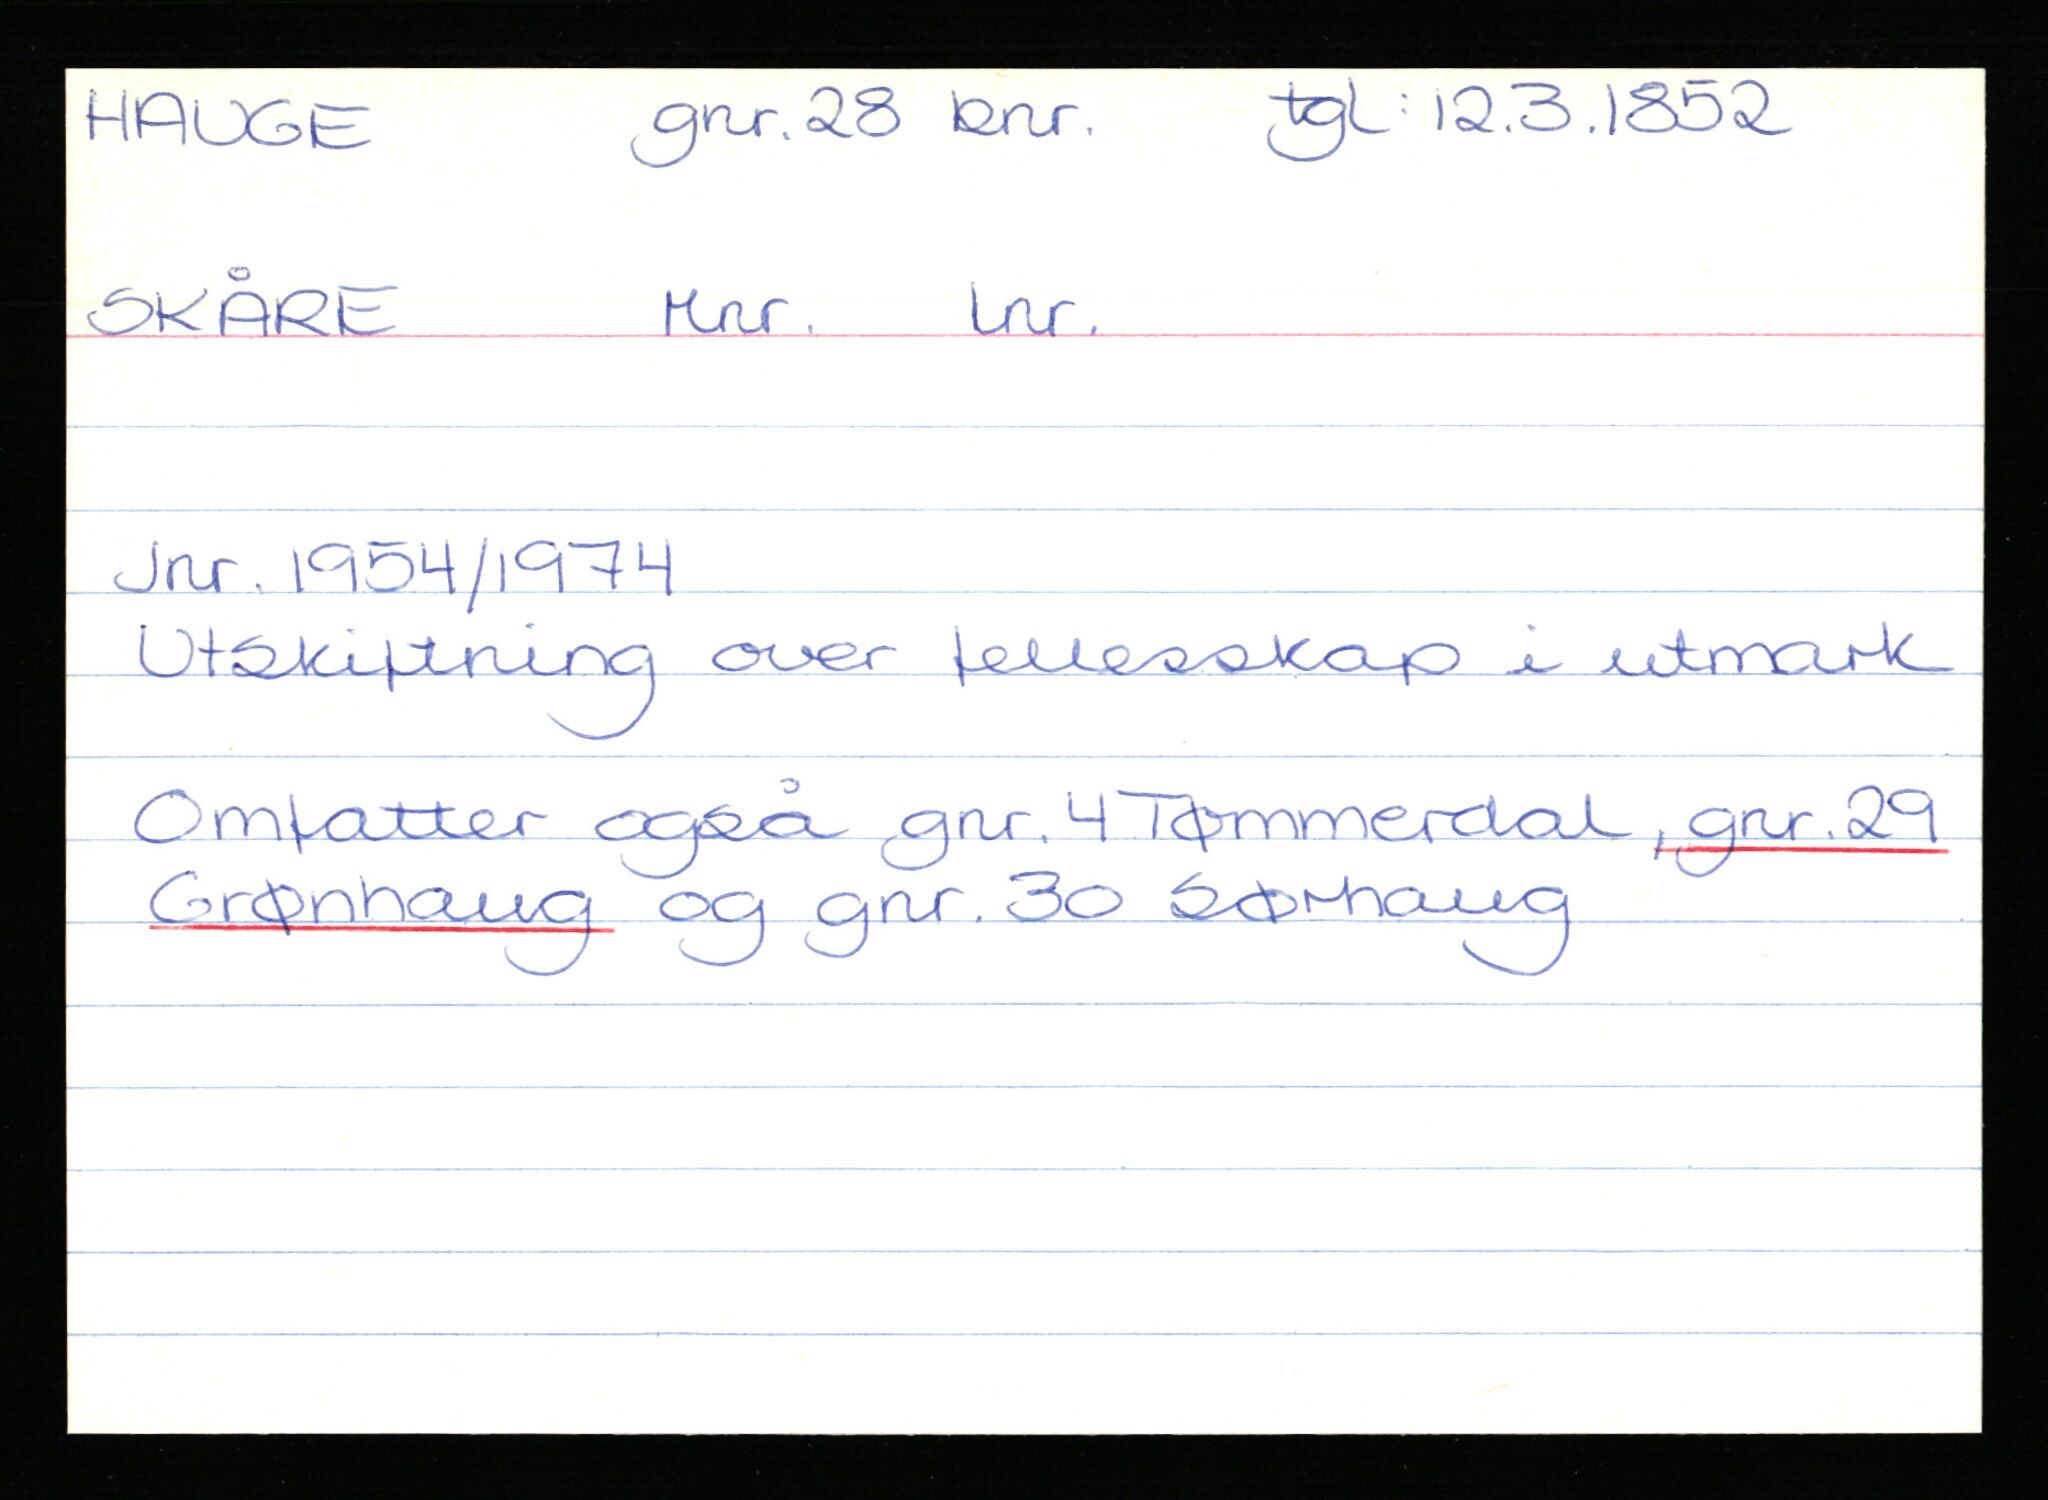 HAUGE gnr. 28 bnr. tgl: 12.3.1852
SKÅRE Mnr. Lnr.
Jnr. 1954/1974
Utskiftning over fellesskap i utmark
Omfatter også gnr. 4 Tømmerdal, gnr. 29
Grønhaug og gnr. 30 Sørhaug